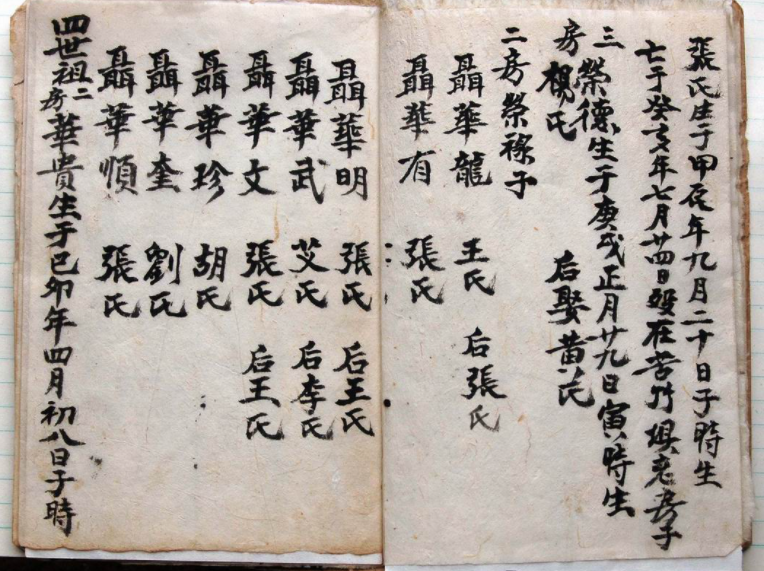 張氏生于甲辰年九月二十日子時生
亡于癸亥年七月廿四日發在苦竹壩老房子
三房 榮德生于庚戌正月廿九日寅時生
楊氏 后娶黄氏
二房榮祿子
聶華龍 王氏 后張氏
聶華有 張氏
聶華明 張氏 后王氏
聶華武 艾氏 后李氏
聶華文 張氏 后王氏
聶華珍 胡氏
聶華奎 劉氏
聶華順 張氏
四世祖二房華貴生于己卯年四月初八日子時